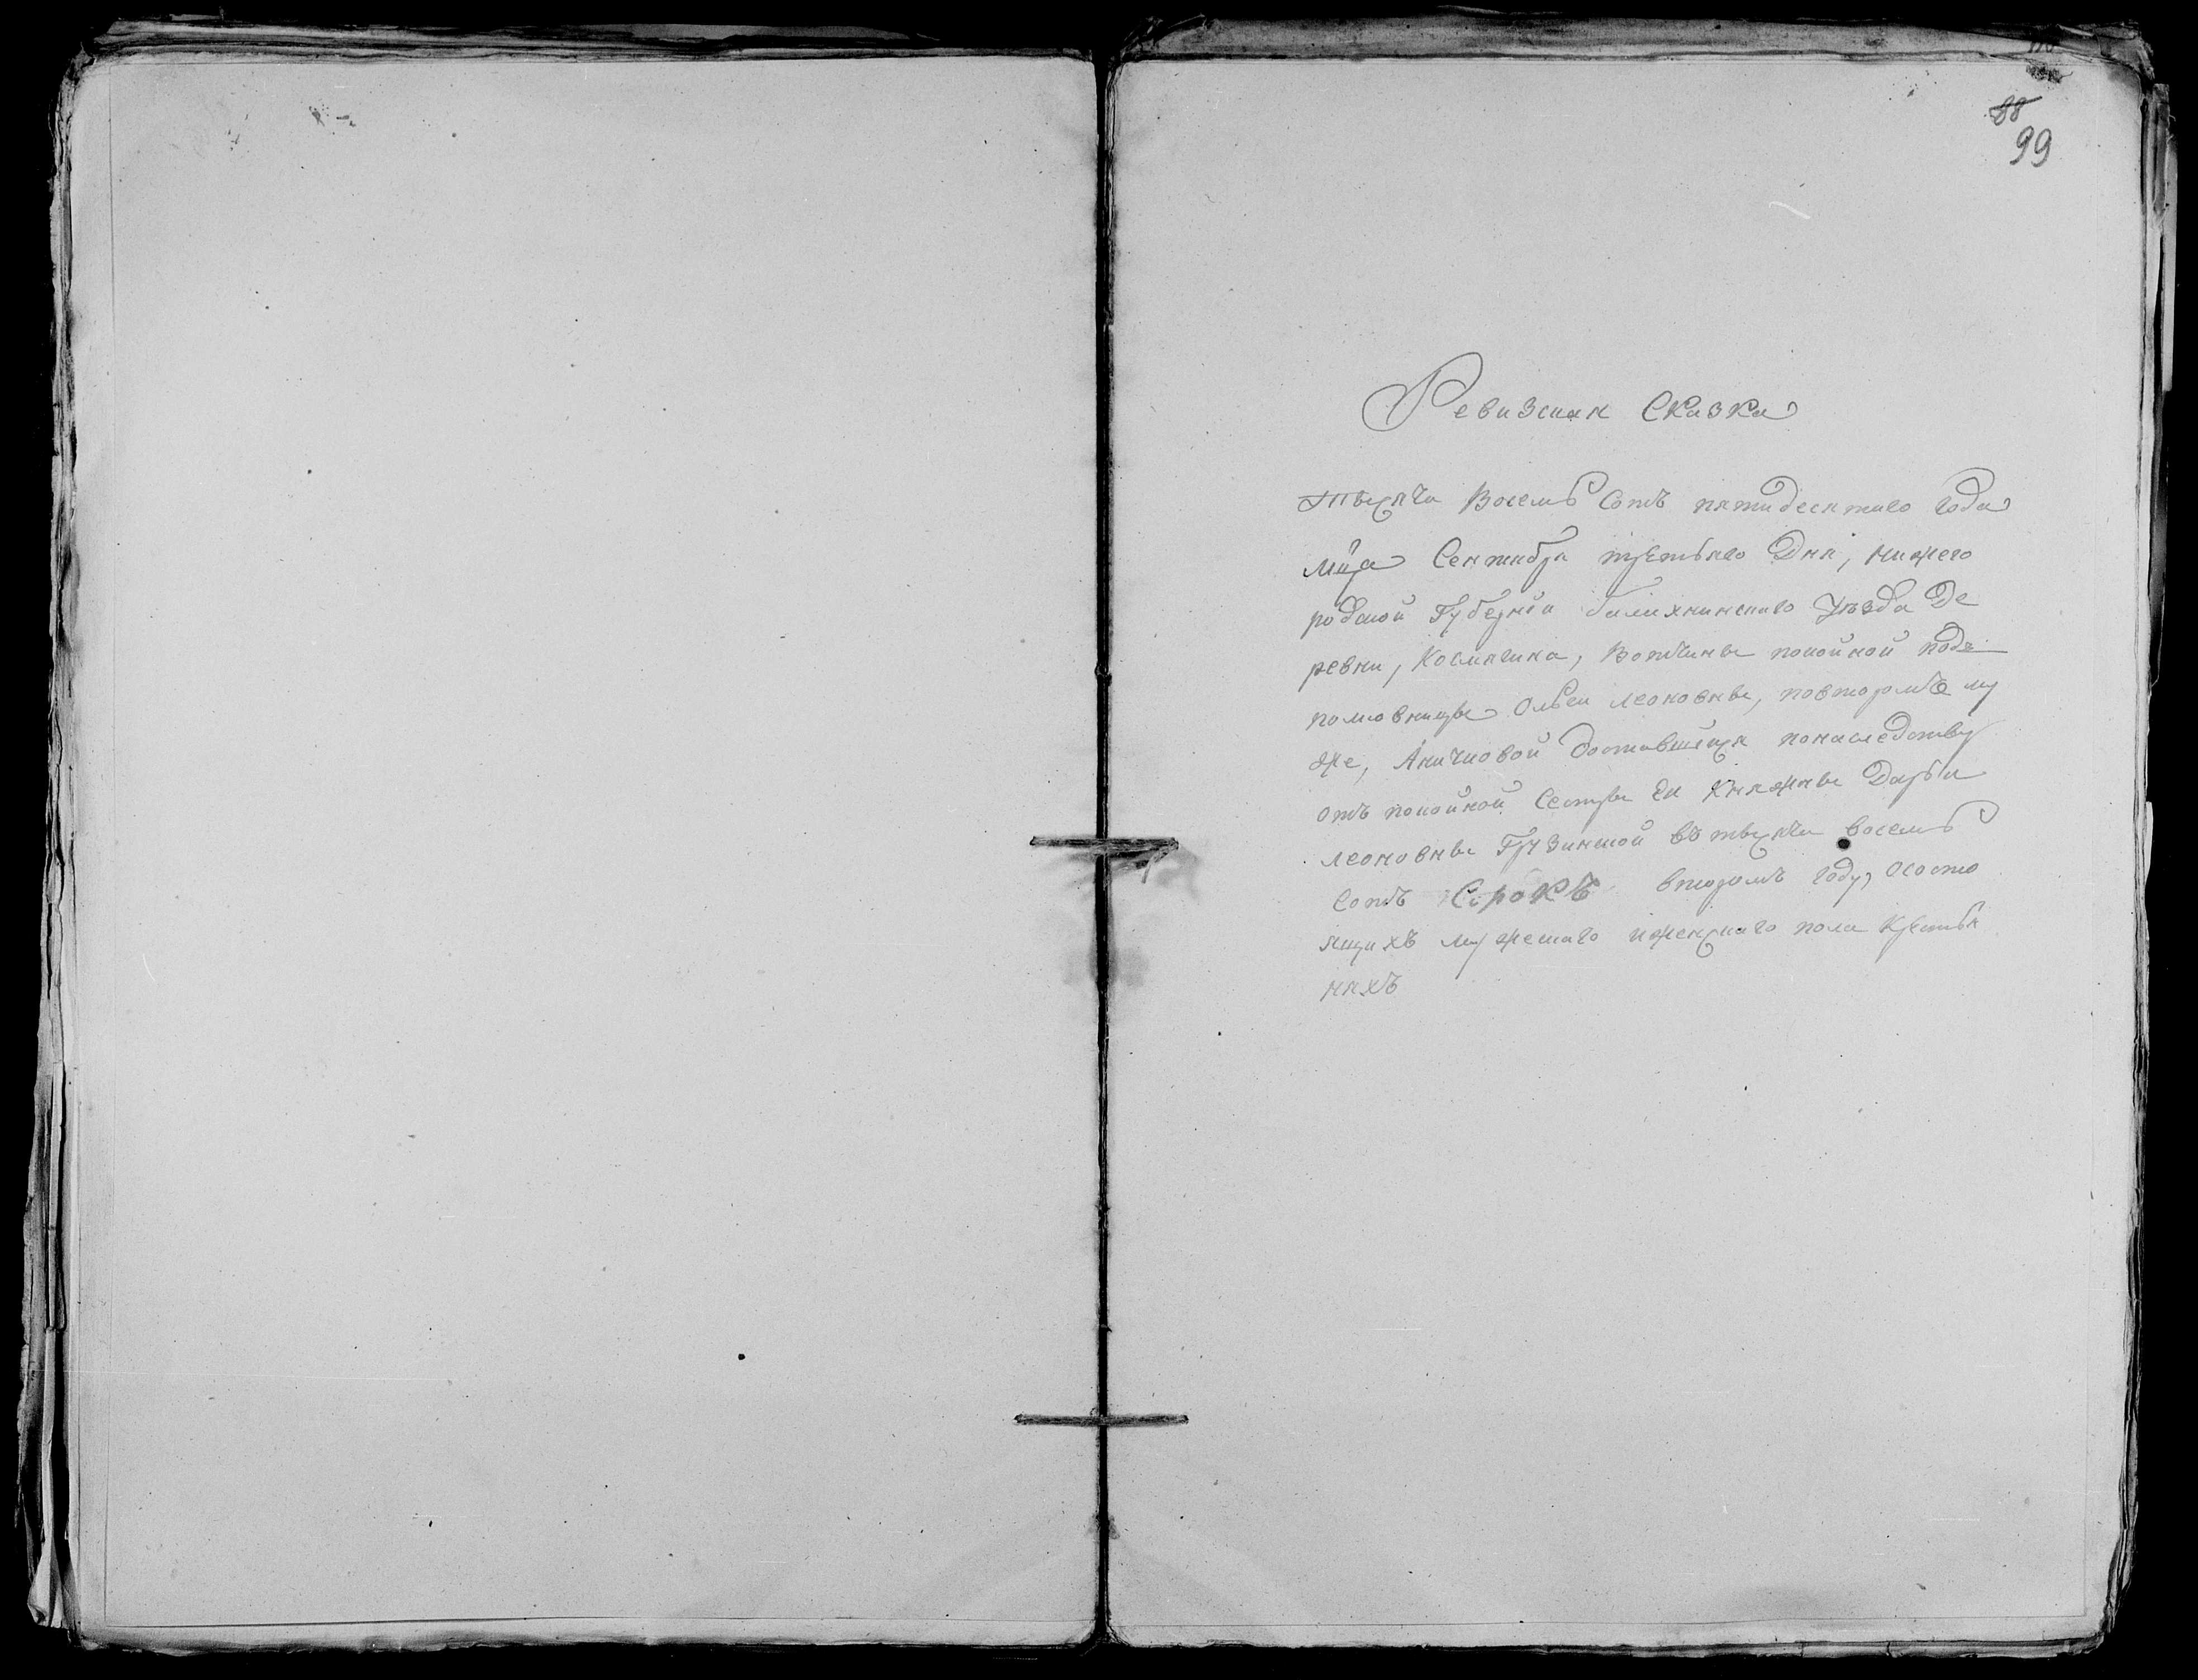 88
99
Ревизская Сказка
Тысяча Восемь Сотъ пятидесятаго Года
мца Сентября третьяго Дня, Нижего
родской Губерніи балихнинскаго Уѣзда Де
ревни, Вотчины покойной подъ
полковницы Ольги леоновны, повторомъ му
же, Аничковой доставшихся понаследству
отъ покойной Сестры Ея Княжны Дарьи
леоновны Грузинской въ тысяча восемь
Сотъ Сорокъ второмъ Году, ососто
ящихъ мужескаго иженскаго пола Крестья
няхъ